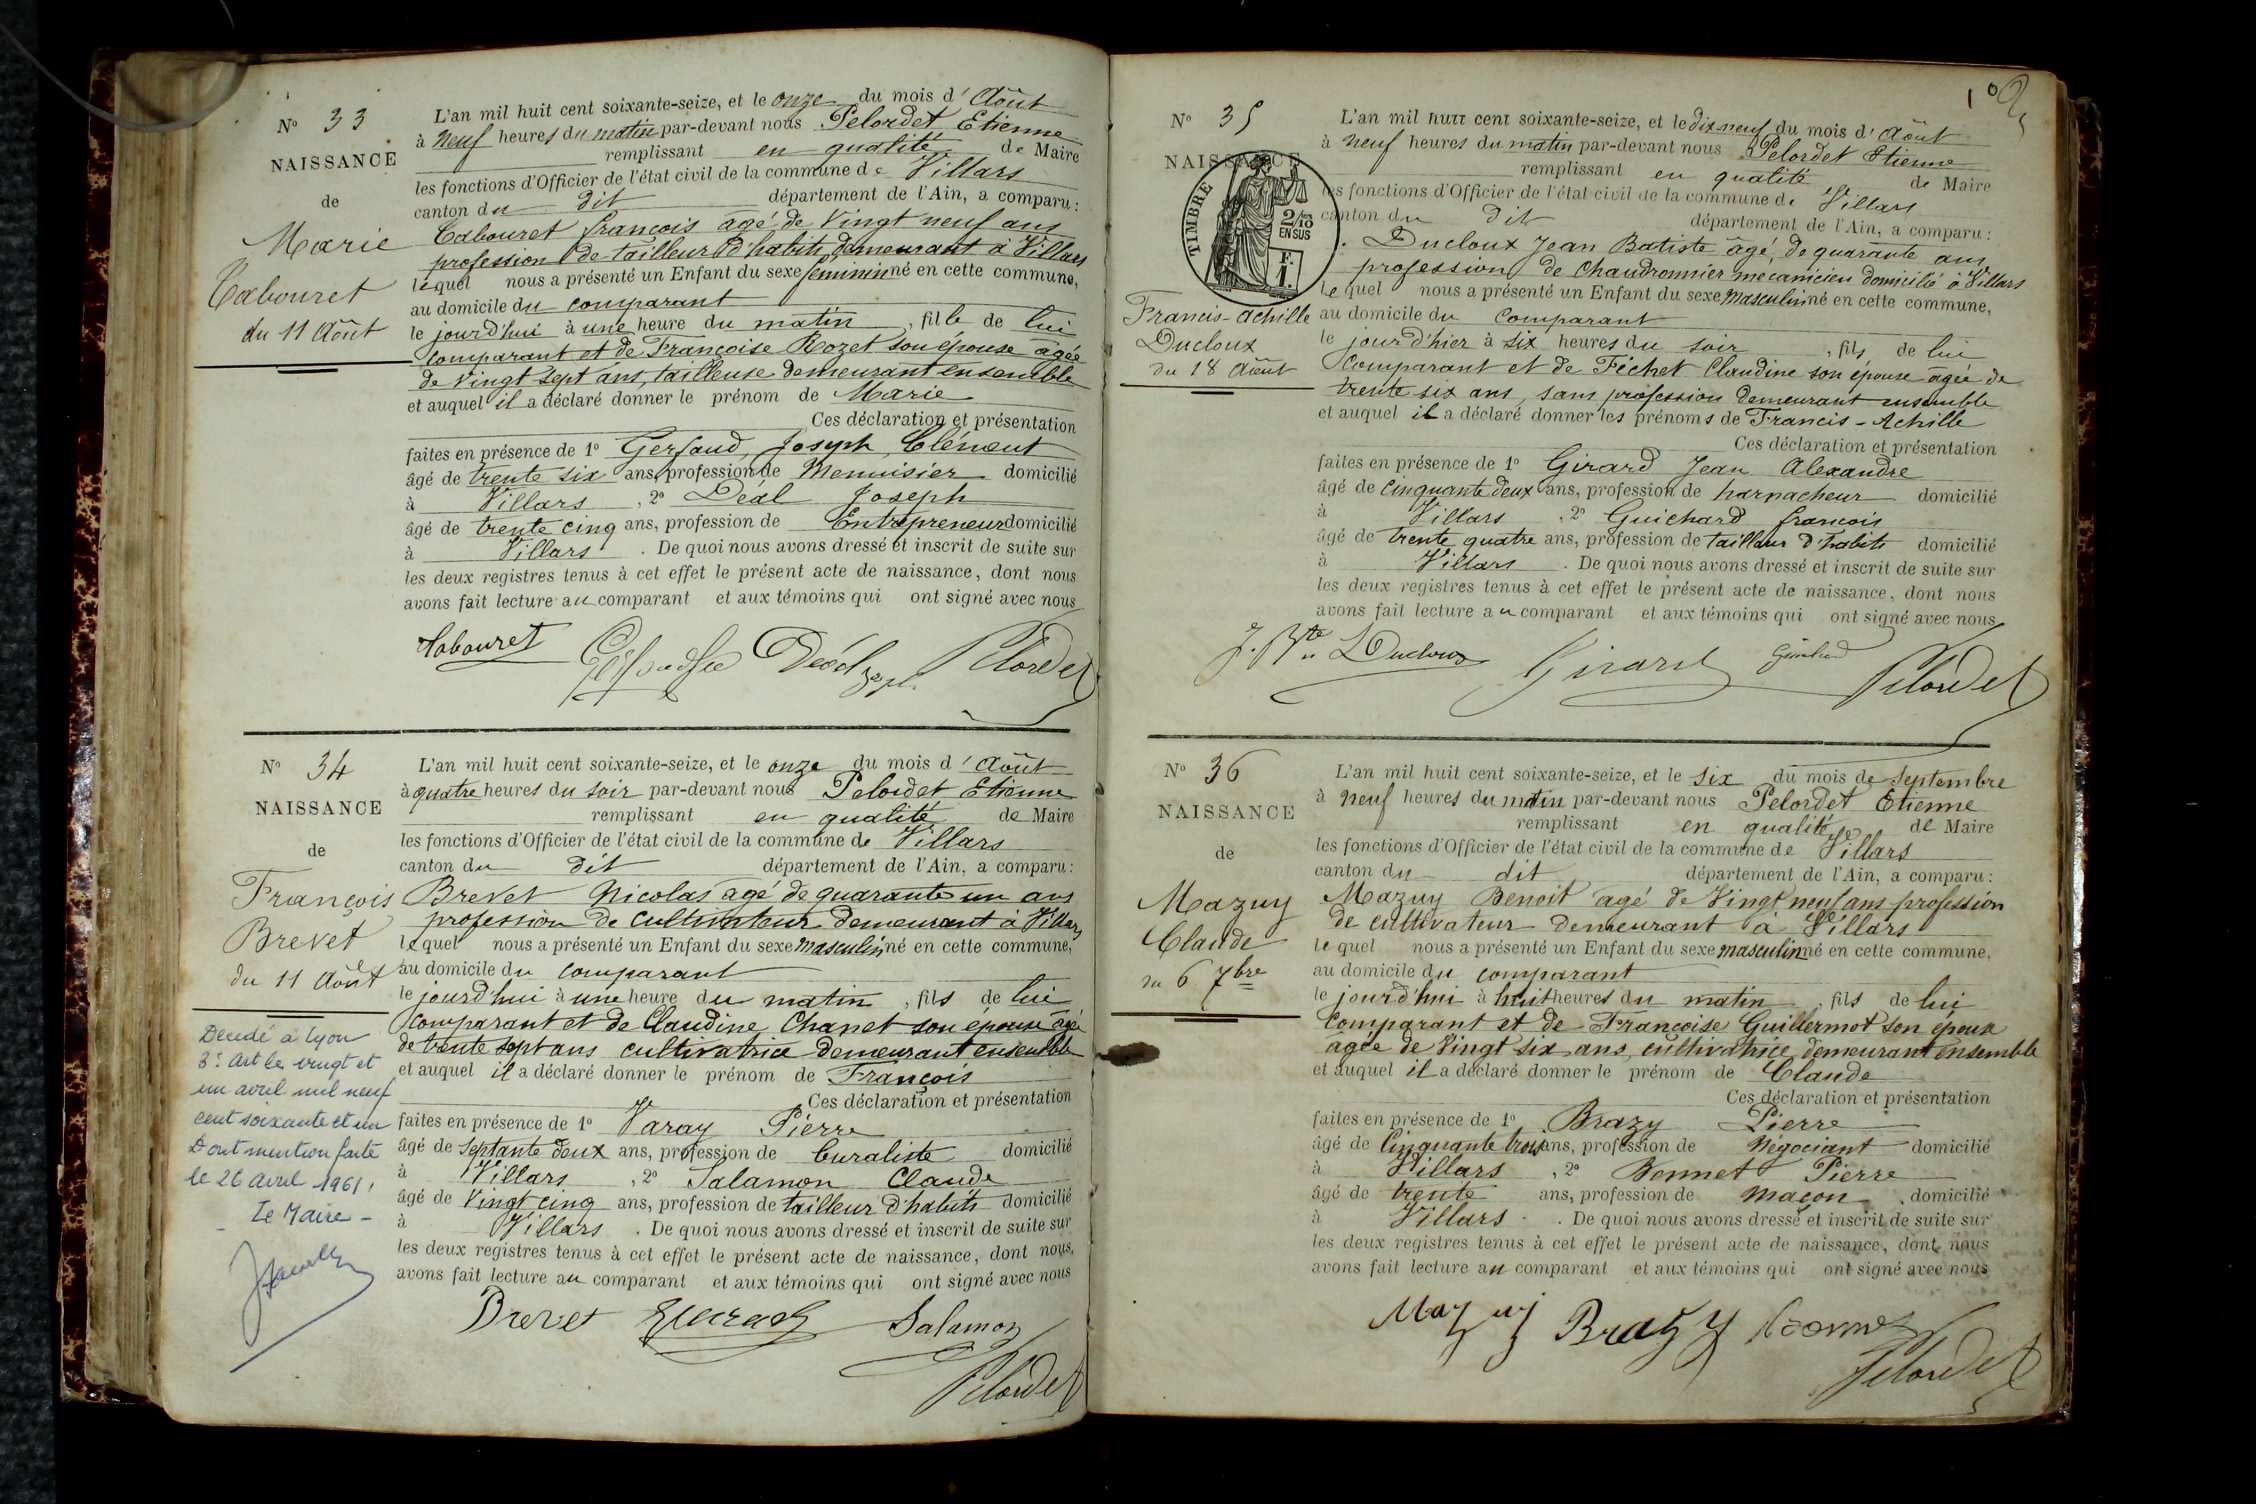 N° 33
NAISSANCE
de
Marie
Cabouret
du 11 Août
L'an mil huit cent soixante-seize, et le onze du mois d' Août
à neuf heures du matin par-devant nous Pelordet Etienne
remplissant en qualité de Maire
les fonctions d'Officier de l'état civil de la commune de Villars
canton du dit département de l'Ain, a comparu :
Cabouret françois âgé de Vingt neuf ans
profession de tailleur d'habits demeurant à Villars
lequel nous a présenté un Enfant du sexe féminin né en cette commune,
au domicile du comparant
le jourd'hui à une heure du matin, fille de lui
comparant et de Françoise Rozet son épouse âgée
de Vingt sept ans, tailleuse demeurant ensemble
et auquel il a déclaré donner le prénom de Marie
Ces déclaration et présentation
faites en présence de 1° Gerfaud, Joseph Clément
âgé de trente six ans, profession de Menuisier domicilié
à Villars, 2° Déal Joseph
âgé de trente cinq ans, profession de Entrepreneur domicilié
à Villars. De quoi nous avons dressé et inscrit de suite sur
les deux registres tenus à cet effet le présent acte de naissance, dont nous
avons fait lecture au comparant et aux témoins qui ont signé avec nous
Cabouret Déal Jph. Pelordet
N° 34
NAISSANCE
de
François
Brevet
du 11 Août
Décédé à Lyon
3e Art le vingt et
un avril mil neuf
cent soixante et un
Dont mention faite
le 26 Avril 1961.
Le Maire -
L'an mil huit cent soixante-seize, et le onze du mois d' Août
à quatre heures du soir par-devant nous Pelordet Etienne
remplissant en qualité de Maire
les fonctions d'Officier de l'état civil de la commune de Villars
canton du dit département de l'Ain, a comparu :
Brevet Nicolas âgé de quarante un ans
profession de cultivateur demeurant à Villars
lequel nous a présenté un Enfant du sexe masculin né en cette commune,
au domicile du comparant
le jourd'hui à une heure du matin, fils de lui
comparant et de Claudine Chanet son épouse âgée
de trente sept ans cultivatrice demeurant ensemble
et auquel il a déclaré donner le prénom de François
Ces déclaration et présentation
faites en présence de 1° Varay Pierre
âgé de septante deux ans, profession de buraliste domicilié
à Villars, 2° Salamon Claude
âgé de Vingt cinq ans, profession de tailleur d'habits domicilié
à Villars. De quoi nous avons dressé et inscrit de suite sur
les deux registres tenus à cet effet le présent acte de naissance, dont nous
avons fait lecture au comparant et aux témoins qui ont signé avec nous
Brevet Salamon
Pelordet
N° 35
NAISSANCE
TIMBRE
2/10
EN SUS
F.
1.
Francis-Achille
Ducloux
du 18 Août
L'an mil huit cent soixante-seize, et le dix neuf du mois d' Août
à neuf heures du matin par-devant nous Pelordet Etienne
remplissant en qualité de Maire
les fonctions d'Officier de l'état civil de la commune de Villars
canton du dit département de l'Ain, a comparu :
Ducloux Jean Batiste âgé, de quarante ans
profession de chaudronnier mécanicien domicilié à Villars
lequel nous a présenté un Enfant du sexe masculin né en cette commune,
au domicile du comparant
le jour d'hier à six heures du soir, fils de lui
comparant et de Féchet Claudine son épouse âgée de
trente six ans, sans profession demeurant ensemble
et auquel il a déclaré donner les prénoms de Francis-Achille
Ces déclaration et présentation
faites en présence de 1° Girard Jean Alexandre
âgé de cinquante deux ans, profession de harnacheur domicilié
à Villars, 2° Guichard françois
âgé de trente quatre ans, profession de tailleur d'habits domicilié
à Villars. De quoi nous avons dressé et inscrit de suite sur
les deux registres tenus à cet effet le présent acte de naissance, dont nous
avons fait lecture au comparant et aux témoins qui ont signé avec nous
J. Bte Ducloux Girard Pelordet
N° 36
NAISSANCE
de
Mazuy
Claude
du 6 7bre
L'an mil huit cent soixante-seize, et le six du mois de Septembre
à neuf heures du matin par-devant nous Pelordet Etienne
remplissant en qualité de Maire
les fonctions d'Officier de l'état civil de la commune de Villars
canton du dit département de l'Ain, a comparu :
Mazuy Benoit âgé de Vingt neuf ans profession
de cultivateur demeurant à Villars
lequel nous a présenté un Enfant du sexe masculin né en cette commune,
au domicile du comparant
le jourd'hui à huit heures du matin, fils de lui
comparant et de Françoise Guillermot son épouse
âgée de Vingt six ans, cultivatrice demeurant ensemble
et auquel il a déclaré donner le prénom de Claude
Ces déclaration et présentation
faites en présence de 1° Brazy Pierre
âgé de Cinquante trois ans, profession de Négociant domicilié
à Villars, 2° Bonnet Pierre
âgé de trente ans, profession de maçon, domicilié
à Villars. De quoi nous avons dressé et inscrit de suite sur
les deux registres tenus à cet effet le présent acte de naissance, dont nous
avons fait lecture au comparant et aux témoins qui ont signé avec nous
Mazuy Brazy
Pelordet